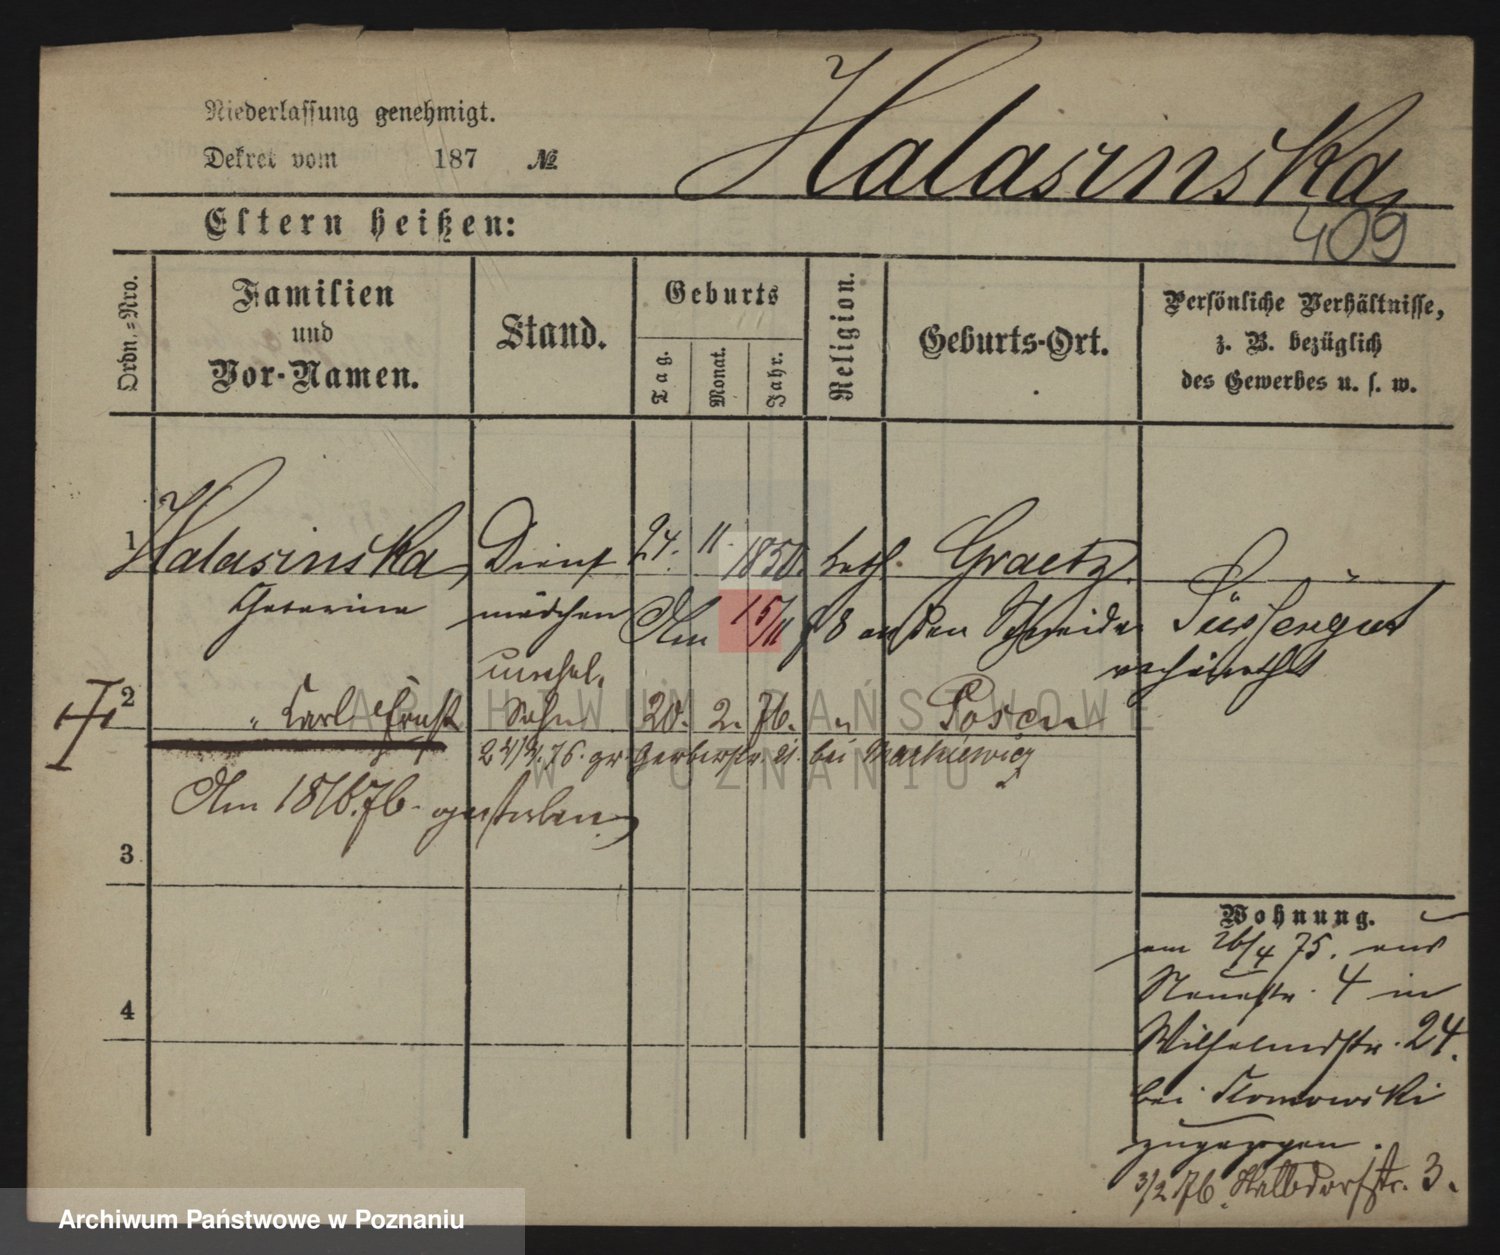 Niederlassung genehmigt.
Dekret vom 187 №
Halasinska
409
Eltern heißen:
Ordn.-Nro.
Familien
und
Vor-Namen.
Stand.
Geburts
Tag.
Monat.
Jahr.
Religion.
Geburts-Ort.
Persönliche Verhältnisse,
z. B. bezüglich
des Gewerbes u. s. w.
1 Halasinska, Dienst 24. 11. 1850. kath. Graetz.
Catarina mädchen Am 15/11 78 an den Schneider
verheirathet
unehel.
2 " Carl Ernst Sohn 20. 2. 76. " Posen
24/4. 76. gr. Gerberstr. 21. bei Markiewicz
Am 18/6.76. gestorben
3
4
Wohnung.
am 26/4 75. aus
Neuestr. 4 in
Wilhelmstr. 24.
bei
zugezogen.
3/2 76. Halbdorfstr. 3.
ARCHIWUM PAŃSTWOWE
W POZNANIU
Archiwum Państwowe w Poznaniu